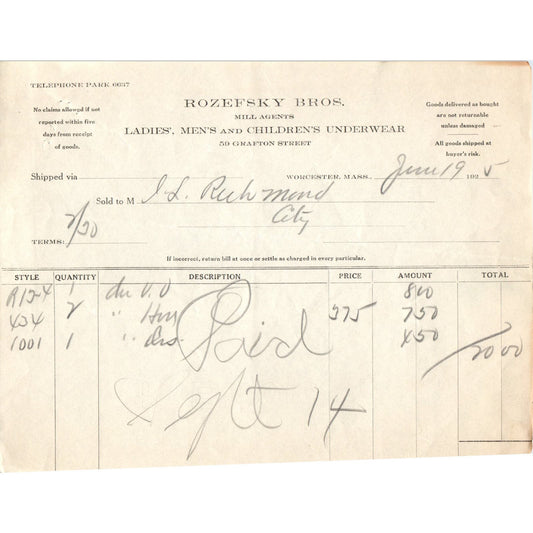 TELEPHONE PARK 6637
ROZEFSKY BROS.
MILL AGENTS
LADIES', MEN'S AND CHILDREN'S UNDERWEAR
59 GRAFTON STREET
No claims allowed if not
reported within five
days from receipt
of goods.
Goods delivered as bought
are not returnable
unless damaged
All goods shipped at
buyer's risk.
Shipped via
WORCESTER, MASS., June 19 1925
Sold to M J. L. Richmond
City
TERMS: 2/30
If incorrect, return bill at once or settle as charged in every particular.
STYLE QUANTITY DESCRIPTION PRICE AMOUNT TOTAL
R12-4 1 800
434 2 " 375 750
1001 1 " 450
2000
Paid
Sept 14